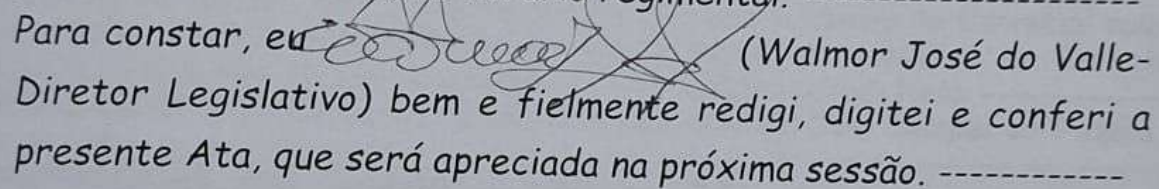 Para constar, eu (Walmor José do Valle-
Diretor Legislativo) bem e fielmente redigi, digitei e conferi a
presente Ata, que será apreciada na próxima sessão. ------------